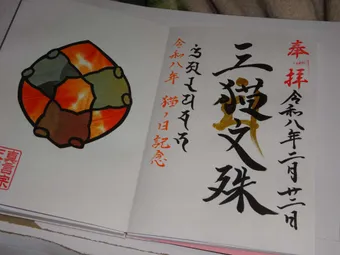 奉拝
令和八年二月廿二日
三猫文殊
令和八年 猫ノ日記念
真言宗